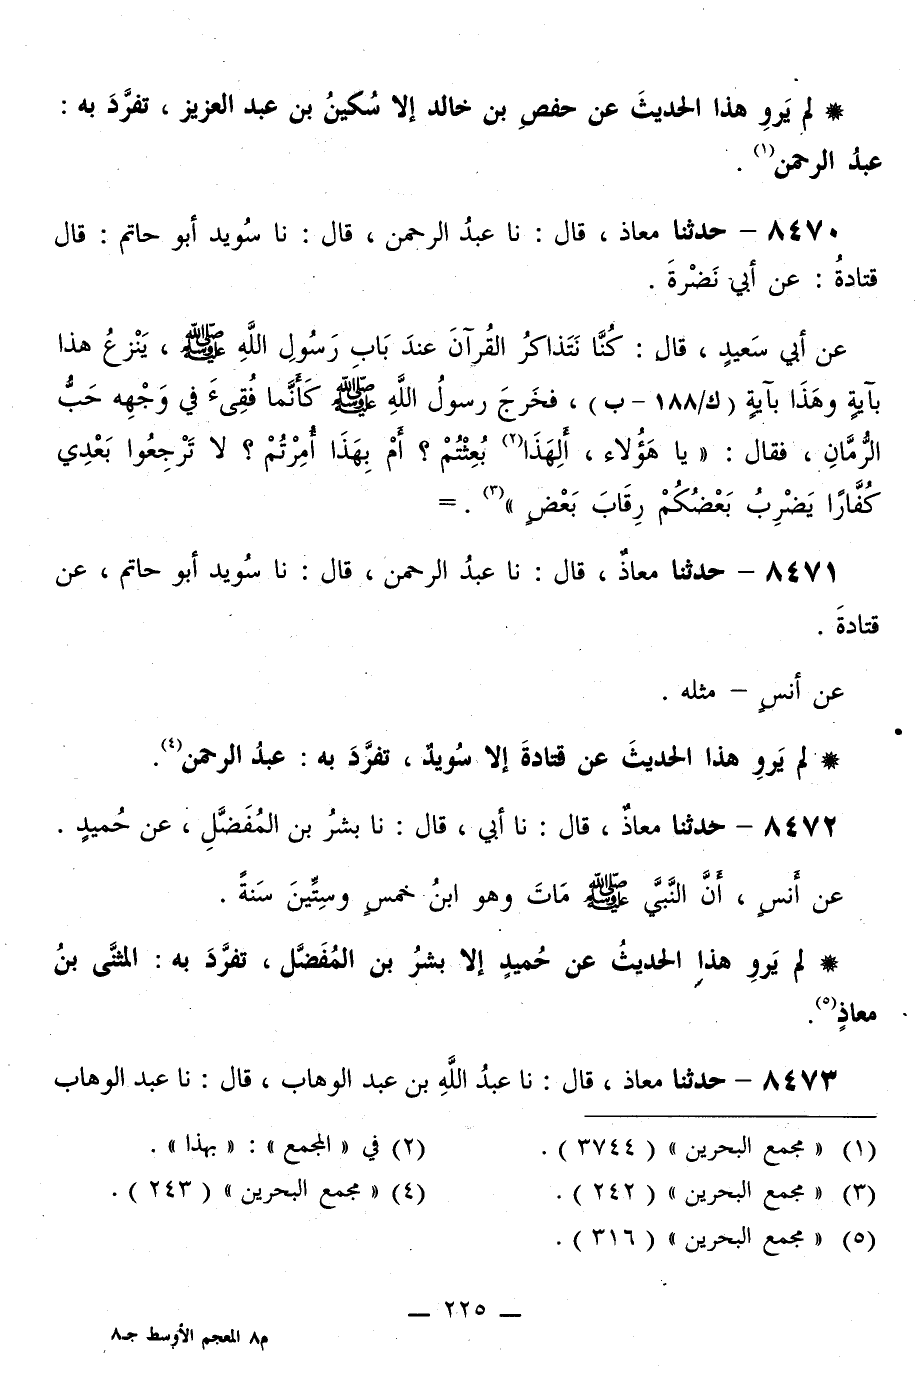 * لم يَروِ هذا الحديثَ عن حفصِ بن خالد إلا سُكينُ بن عبد العزيز ، تفرَّدَ به :
عبدُ الرحمن(١) .
٨٤٧٠ – حدثنا معاذ ، قال : نا عبدُ الرحمن ، قال : نا سُويد أبو حاتم : قال
قتادةُ : عن أبي نَضْرةَ .
عن أبي سَعيدٍ ، قال : كُنَّا نَتَذاكرُ القُرآنَ عندَ بَابِ رَسُولِ اللَّهِ ﷺ ، يَنْزعُ هذا
بآيةٍ وهَذَا بآيةٍ (ك/١٨٨ – ب) ، فخَرجَ رسولُ اللَّهِ ﷺ كَأَنَّما فُقِىءَ في وَجْهِه حَبُّ
الرُّمَّانِ ، فقال : « يا هَؤُلاء ، أَلِهَذَا(٢) بُعِثْتُمْ ؟ أَمْ بِهَذَا أُمِرْتُمْ ؟ لا تَرْجِعُوا بَعْدِي
كُفَّارًا يَضْرِبُ بَعْضُكُمْ رِقَابَ بَعْضٍ »(٣) . =
٨٤٧١ – حدثنا معاذٌ ، قال : نا عبدُ الرحمن ، قال : نا سُويد أبو حاتم ، عن
قتادةَ .
عن أنسٍ – مثله .
* لم يَروِ هذا الحديثَ عن قتادةَ إلا سُويدٌ ، تفرَّدَ به : عبدُ الرحمن(٤).
٨٤٧٢ – حدثنا معاذٌ ، قال : نا أبي ، قال : نا بشرُ بن المُفَضَّلِ ، عن حُميدٍ .
عن أَنسٍ ، أَنَّ النَّبيَّ ﷺ مَاتَ وهو ابنُ خمسٍ وسِتِّينَ سَنةً .
* لم يَروِ هذا الحديثُ عن حُميدٍ إلا بشرُ بن المُفَضَّل ، تفرَّدَ به : المثنَّى بنُ
معاذٍ(٥).
٨٤٧٣ – حدثنا معاذ ، قال : نا عبدُ اللَّهِ بن عبد الوهاب ، قال : نا عبد الوهاب
(١) « مجمع البحرين » ( ٣٧٤٤ ) .
(٢) في « المجمع » : « بهذا » .
(٣) « مجمع البحرين » ( ٢٤٢ ) .
(٤) « مجمع البحرين » ( ٢٤٣ ) .
(٥) « مجمع البحرين » ( ٣١٦ ) .
— ٢٢٥ —
م٨ المعجم الأوسط جـ٨